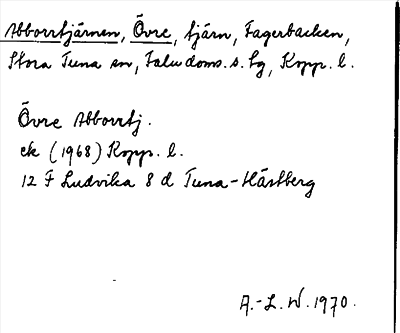 Abborrtjärnen, Övre, tjärn, Fagerbacken,
Stora Tuna sn, Falu doms. s. tg, Kopp. l.
Övre Abborrtj.
ek (1968) Kopp. l.
12 F Ludvika 8 d Tuna-Hästberg
A.-L. W. 1970.